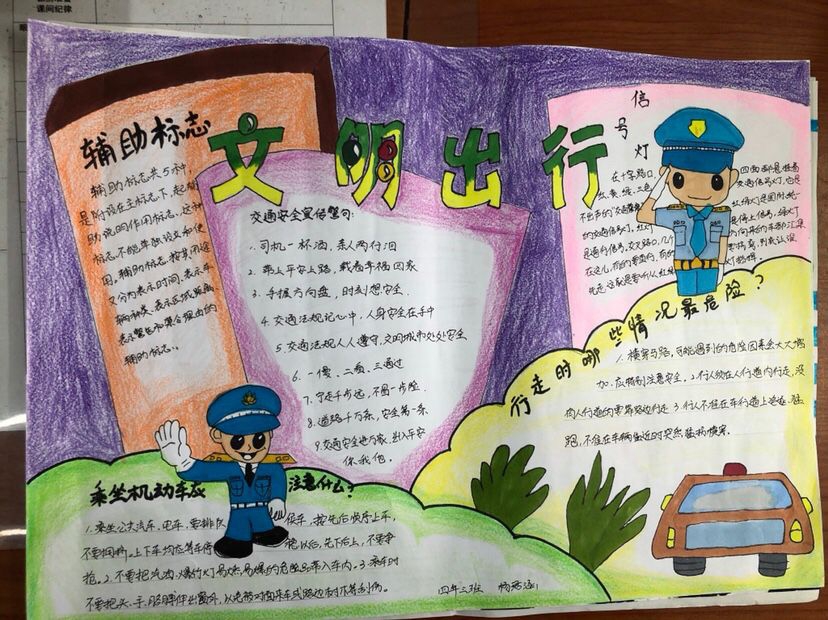 课间纪律
文明出行
辅助标志
辅助标志共5种,
是附设在主标志下,起辅
助说明作用标志。这种
标志不能单独设立和使
用。辅助标志按其用途
又分为表示时间、表示车
辆种类、表示区域或距离
辅助标志。
交通安全宣传警句:
1.司机一杯酒,亲人两行泪
2.带上平安上路,载着幸福回家
3.手握方向盘,时刻想安全
4.交通法规记心中,人身安全在手中
5.交通法规人人遵守,文明城市处处安全
6.一慢、二看、三通过
7.宁走千步远,不冒一步险.
8.道路千万条,安全第一条
9.交通安全进万家,出入平安
你我他。
信
号
灯
在十字路口,
红、黄、绿、三色
四面都悬挂着
交通信号灯,也是
行走时哪些情况最危险?
1.横穿马路,可能遇到的危险因素会大大增
加,应特别注意安全。2.行人须在人行道内行走,没
有人行道的要靠路边行走。3.行人不准在车行道上追逐、猛
跑,不准在车辆临近时突然猛拐横穿。
乘坐机动车应 注意什么?
1.乘坐公共汽车、电车,要排队 候车,按先后顺序上车,
不要拥挤。上下车均应等车停 稳以后,先下后上,不要争
抢。2.不要把汽油、爆竹灯易燃易爆的危险品带入车内。3.乘车时
不要把头、手、胳膊伸出窗外,以免被对面来车或路边树木等刮伤。
四年三班